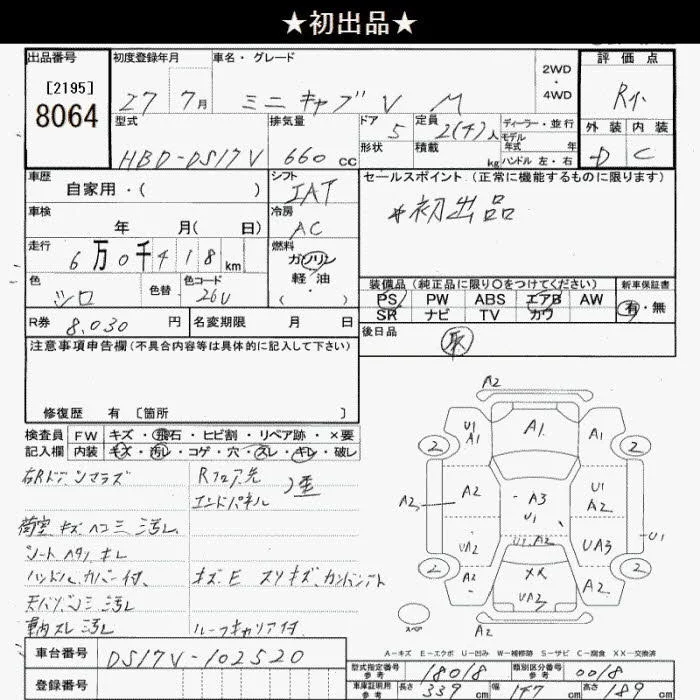 ★初出品★
出品番号 初度登録年月 車名・グレード 評価点
[2195] 2WD・4WD
8064 27 7月 ミニキャブ V M R
外装 内装
D C
型式 排気量 ドア 定員 ディーラー・並行
HBD-DS17V 660 CC 5 2(4)人 モデル年式 年
形状 積載 kg ハンドル 左・右
車歴 シフト セールスポイント(正常に機能するものに限ります)
自家用・( ) IAT
*初出品
車検 冷房
年 月( 日) AC
走行 燃料
6万0千418km ガソリン
軽油
・( )
色 色替 色コード
シロ 26U
装備品(純正品に限り○をつけてください) 新車保証書
PS PW ABS エアB AW 有・無
SR ナビ TV カワ
R券 8,030円 名変期限 月 日 後日品
注意事項申告欄(不具合内容等は具体的に記入して下さい)
修復歴 有 [箇所 ]
検査員 FW キズ・飛石・ヒビ割・リペア跡・×要
記入欄 内装 キズ・汚レ・コゲ・穴・スレ・キレ・破レ
右Rドアシマラズ Rフロア先
エンドパネル
荷室 キズ ヘコミ 汚レ
シート ヘタリ キレ
ハンドルカバー付、 キズ E スリキズ、
汚レ
車内スレ 汚レ ルーフキャリア付
A2
U1 A1 A1 A1
2 2
A2 A2 A3 U1 A2
U1
U1
U1 A2
UA2 UA3
2 XX 2
UA2 A2
スペア
A2
A-キズ E-エクボ U-凹み W-補修跡 S-サビ C-腐食 XX-交換済
車台番号 DS17V-102520
登録番号
型式指定番号 参考 18018 類別区分番号 参考 0018
車庫証明用 参考 長さ 339cm 幅 147cm 高さ 189cm